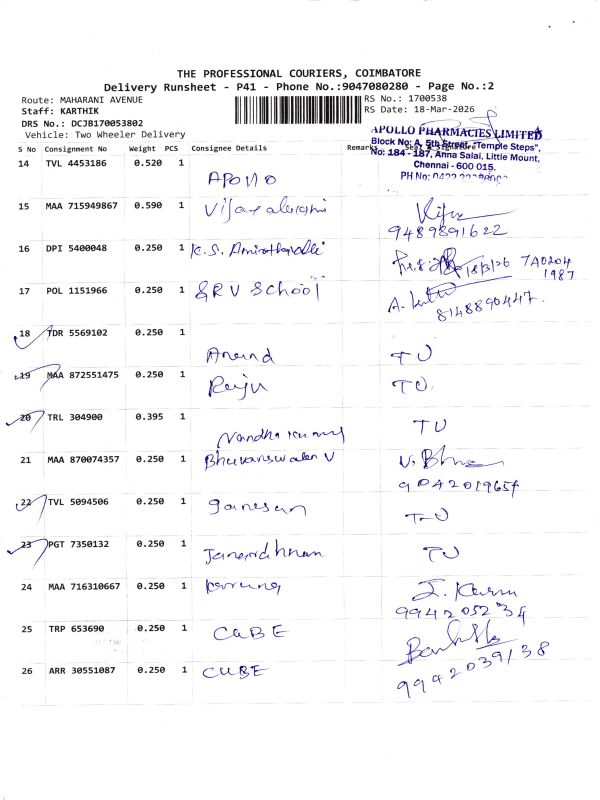 THE PROFESSIONAL COURIERS, COIMBATORE
Delivery Runsheet - P41 - Phone No.:9047080280 - Page No.:2
Route: MAHARANI AVENUE RS No.: 1700538
Staff: KARTHIK RS Date: 18-Mar-2026
DRS No.: DCJB170053802
Vehicle: Two Wheeler Delivery
APOLLO PHARMACIES LIMITED
Block No: A, 5th Street, "Temple Steps",
S No Consignment No Weight PCS Consignee Details Remarks
No: 184 - 187, Anna Salai, Little Mount,
Chennai - 600 015.
PH No: 0422
14 TVL 4453186 0.520 1 APOLLO
15 MAA 715949867 0.590 1 Vijayalakshmi
9489891622
16 DPI 5400048 0.250 1 K.S. 18/3/26 7A0204
1987
17 POL 1151966 0.250 1 SRV School
8148890447.
18 TDR 5569102 0.250 1 Anand TU
19 MAA 872551475 0.250 1 Raju TU
20 TRL 304900 0.395 1 Nandhakumar TU
21 MAA 870074357 0.250 1 Bhuvaneswaran V V. Bhu
9042019657
22 TVL 5094506 0.250 1 Ganesan TU
23 PGT 7350132 0.250 1 Janardhnan TU
24 MAA 716310667 0.250 1
9942052734
25 TRP 653690 0.250 1 CUBE
26 ARR 30551087 0.250 1 CUBE
9942039138